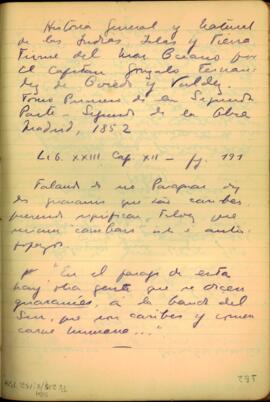 Historia General y Natural
de las Indias Islas y Tierra
Firme del Mar Oceano por
el Capitan Gonzalo Fernan
dez de Oviedo y Valdez.
Tomo Primero de la Segunda
Parte - Segundo de la Obra
Madrid, 1852
Lib. XXIII Cap XII - pg. 191
Falando do rio Paraguai diz
dos guaranis que são caribes
querendo significar talvez que
eram canibais isto é antro-
pofagos
"En el parage de esta
hay otra gente que se dicen
guaranies, á la banda del
Sur, que son caribes y comen
carne humana..."